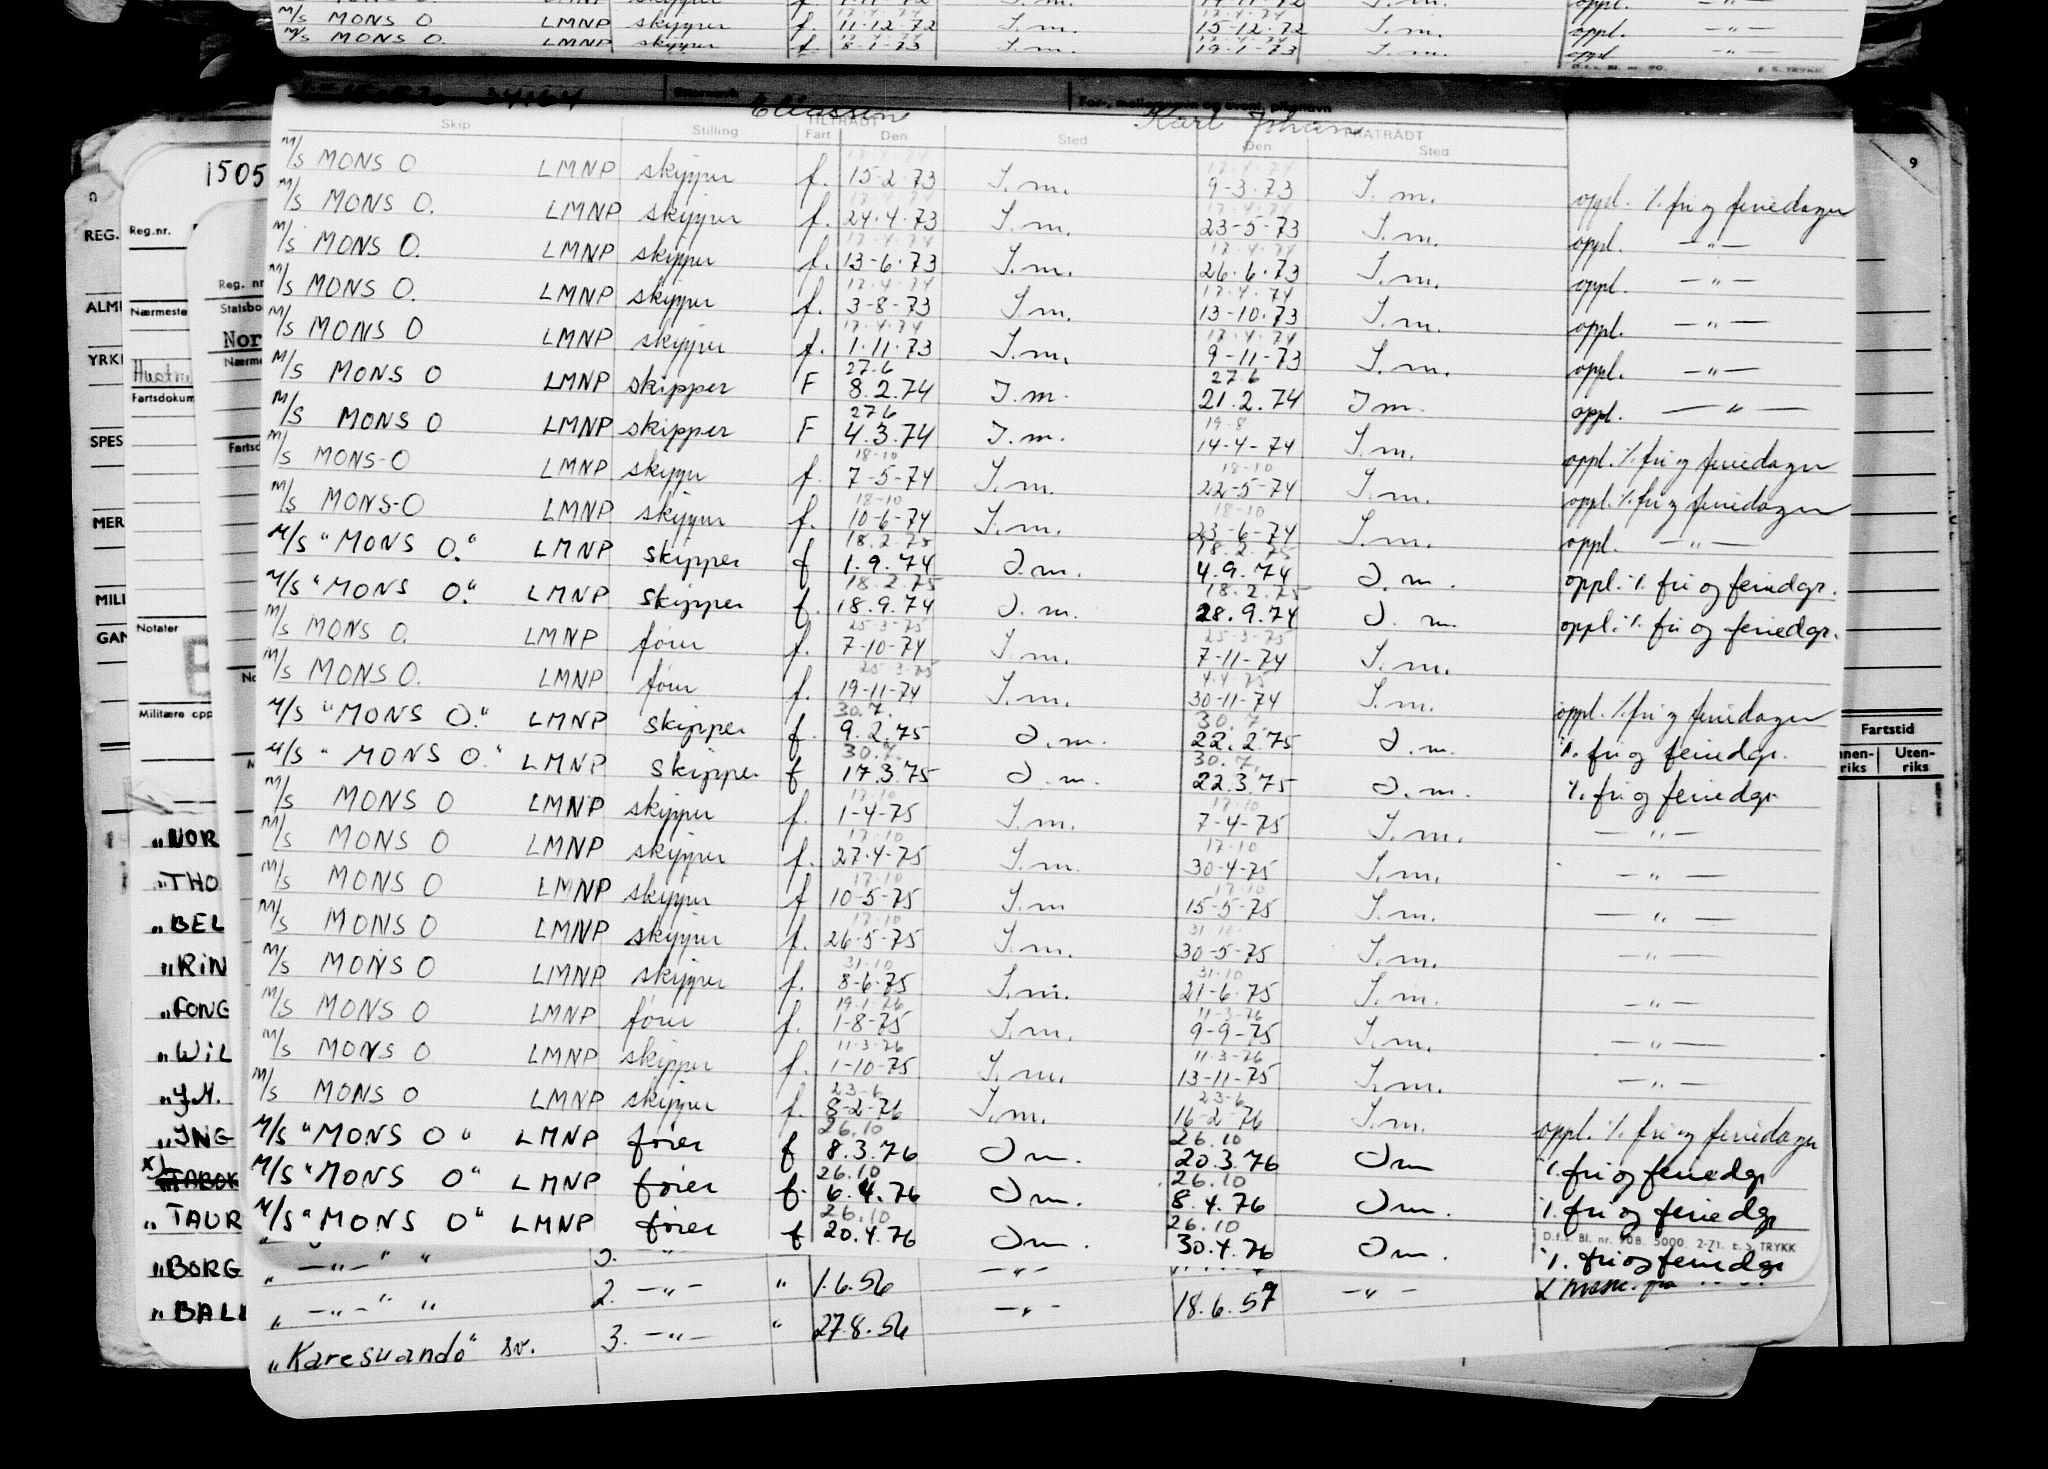 M/S MONS O LMNP skipper f. 11-12-72 I.m. 15-12-72 I.m. oppl. —"—
M/S MONS O. LMNP skipper f 8-1-73 I.m. 19-1-73 I.m. oppl —"—
D.f.s. Bl. nr. 90. E. S. TRYKK
Etternavn Eliassen For-, mellomnavn og event. pikenavn Karl Johan
Skip Stilling TILTRÅDT Fart Den Sted FRATRÅDT Den Sted
17-4-74 17-4-74
M/S MONS O LMNP skipper f. 15-2-73 I.m. 9-3-73 I.m. oppl. ٪ fri og feriedager
17-4-74 17-4-74
M/S MONS O. LMNP skipper f. 24-4-73 I.m. 23-5-73 I.m. oppl. —"—
17-4-74 17-4-74
M/S MONS O. LMNP skipper f. 13-6-73 I.m. 26-6-73 I.m. oppl. —"—
17-4-74 17-4-74
M/S MONS O. LMNP skipper f. 3-8-73 I.m. 13-10-73 I.m. oppl. —"—
17-4-74 17-4-74
M/S MONS O LMNP skipper f. 1-11-73 I.m. 9-11-73 I.m. oppl. —"—
27.6 27.6
M/S MONS O LMNP skipper F 8.2.74 I.m. 21.2.74 I m. oppl. —"—
27.6 19-8
M/S MONS O LMNP skipper F 4.3.74 I.m. 14-4-74 I.m. oppl. ٪ fri og feriedager
18-10 18-10
M/S MONS-O LMNP skipper f. 7-5-74 I.m. 22-5-74 I.m. oppl. ٪ fri og feriedager
18-10 18-10
M/S MONS-O LMNP skipper f. 10-6-74 I.m. 23-6-74 I.m. oppl. —"—
18.2.75 18.2.75
M/S "MONS O." LMNP skipper f 1.9.74 I.m. 4.9.74 I.m. oppl. ٪ fri og feriedgr.
18.2.75 18.2.75
M/S "MONS O." LMNP skipper f. 18.9.74 I.m. 28.9.74 I.m. oppl. ٪ fri og feriedgr.
25-3-75 25-3-75
M/S MONS O. LMNP fører f. 7-10-74 I.m. 7-11-74 I.m.
25-3-75 4.4.75
M/S MONS O. LMNP fører f. 19-11-74 I.m. 30-11-74 I.m. oppl. ٪ fri og feriedager
30.7. 30.7.
M/S "MONS O." LMNP skipper f. 9.2.75 I.m. 22.2.75 I.m. ٪ fri og feriedgr.
30.7. 30.7.
M/S "MONS O." LMNP skipper f 17.3.75 I.m. 22.3.75 I.m. ٪ fri og feriedgr
17-10 17-10
M/S MONS O LMNP skipper f. 1-4-75 I.m. 7-4-75 I.m. —"—
17-10 17-10
M/S MONS O LMNP skipper f. 27-4-75 I.m. 30-4-75 I.m. —"—
17-10 17-10
M/S MONS O LMNP skipper f 10-5-75 I.m 15-5-75 I.m. —"—
17-10 31-10.
M/S MONS O LMNP skipper f. 26-5-75 I.m. 30-5-75 I.m. —"—
31-10 31-10
M/S MONS O LMNP skipper f. 8-6-75 I.m. 21-6-75 I.m. —"—
19-1-76 11-3-76
M/S MONS O LMNP fører f. 1-8-75 I.m. 9-9-75 I.m. —"—
11-3-76 11-3-76
M/S MONS O LMNP skipper f. 1-10-75 I.m. 13-11-75 I.m. —"—
23-6 23-6
M/S MONS O LMNP skipper f. 8-2-76 I.m. 16-2-76 I.m. oppl. ٪ fri og feriedager
26.10 26.10
M/S "MONS O" LMNP fører f 8.3.76 I m. 20.3.76 I m ٪ fri og feriedgr
26.10 26.10
M/S "MONS O" LMNP fører f. 6.4.76 I m. 8.4.76 I m. ٪ fri og feriedgr
26.10 26.10
M/S "MONS O" LMNP fører f 20.4.76 I m. 30.4.76 I m ٪ fri og feriedgr
D.f.s. Bl. nr. 90B. 5000. 2-71. E. S. TRYKK
" —"— " 2. —"— " 1.6.56 —"— 18.6.57 —"—
"Karesuando" sv. 3. —"— " 27.8.56
1505
REG.
Reg.nr.
Reg. nr
Statsbo
Nor
ALM
Nærmeste
YRK
Hustru
Fartsdokum
SPES
MER
MILI
GAN
Notater
Militære opp
"NOR
"THO
"BEL
"RIN
"FONG
"WIL
"J.M.
"ING
x) TABOR
"TAUR
"BORG
"BALI
9
Fartstid
nnen-riks Uten-riks